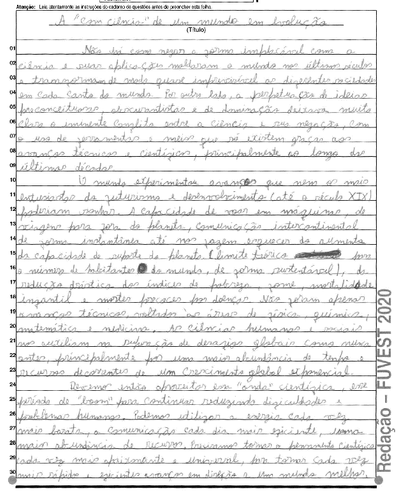 Atenção: Leia atentamente as instruções do caderno de questões antes de preencher esta folha.
A "Com ciência" de um mundo em evolução
(Título)
01 Não há como negar a forma implacável como a
02 ciência e suas aplicações moldaram o mundo nos últimos séculos
03 e transformam de modo quase as diferentes sociedades
04 em cada canto do mundo. Por outro lado, a perpetuação de ideias
05 preconceituosas, e de dominação deixava muito
06 claro o eminente conflito entre a ciência e sua negação, com
07 o uso de ferramentas e meios que só existem graças aos
08 avanços técnicos e científicos, principalmente ao longo das
09 últimas décadas.
10 O mundo experimentou avanços que nem os mais
11 entusiastas do futurismo e desenvolvimento (até o século XIX)
12 poderiam sonhar. A capacidade de voar em máquinas, de
13 viagens para fora do planeta, comunicação intercontinental
14 de forma instantânea até nos fazem esquecer do aumento
15 da capacidade de suporte do planeta (limite teórico para
16 o número de habitantes do mundo, de forma sustentável), da
17 redução drástica dos índices de pobreza, fome, mortalidade
18 infantil e mortes por doenças. Não foram apenas
19 avanços técnicos voltados às áreas de física, química,
20 matemática e medicina. As ciências humanas e sociais
21 nos auxiliam na superação de desafios globais como nunca
22 antes, principalmente por uma maior abundância de tempo e
23 recursos decorrentes de um crescimento global exponencial.
24 Devemos então aproveitar em "onda" científica, esse
25 período de "boom" para continuar reduzindo dificuldades e
26 problemas humanos. Podemos utilizar a energia cada vez
27 mais barata, a comunicação cada dia mais eficiente, uma
28 maior abundância de recursos. Precisamos tornar o pensamento científico
29 cada vez mais e universal, por tomar cada vez
30 mais rápidos e eficientes avanços em direção a um mundo melhor.
Redação – FUVEST 2020